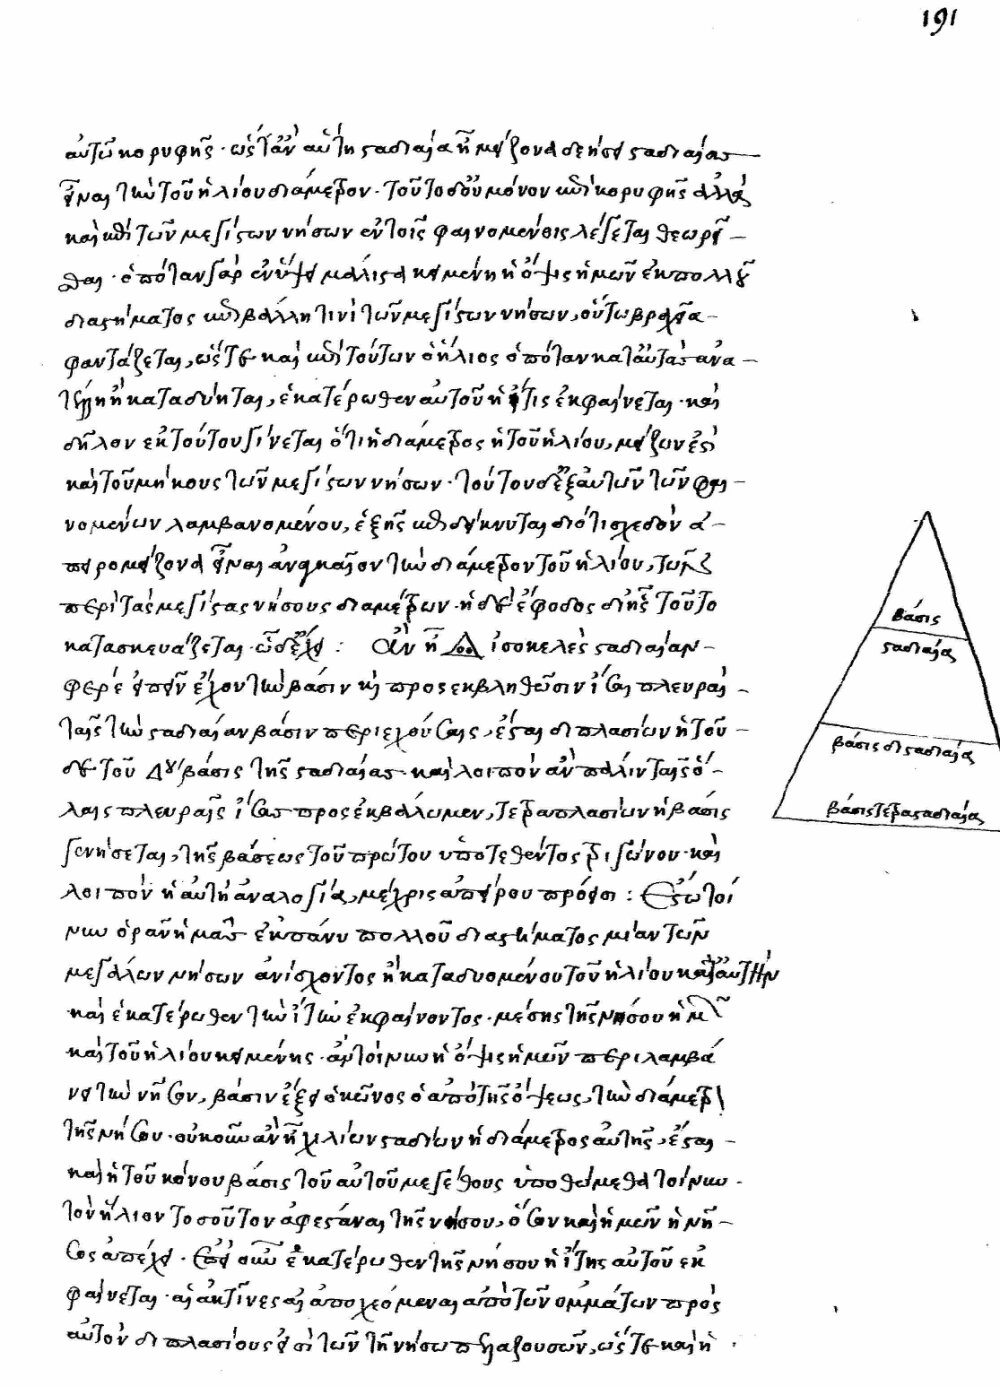 191
αὐτῶν κορυφῆς · ὡς τ' ἂν αὐτὴ σταδιαία ἢ μείζονα δεήσει σταδιαίας
εἶναι τὴν τοῦ ἡλίου διάμετρον · τοῦτο δ' οὐ μόνον ἐπὶ κορυφῆς ἀλλὰ
καὶ ἐπὶ τῶν μεγίστων νήσων ἐν τοῖς φαινομένοις λέγεται θεωρεῖ-
σθαι · ὁπόταν γὰρ ἐν ὕψει μάλιστα κειμένη ἡ ὄψις ἡμῶν ἐκ πολλοῦ
διαστήματος ἐπιβάλλῃ τινὶ τῶν μεγίστων νήσων, οὕτω βραχεῖα
φαντάζεται, ὥστε καὶ ἐπὶ τούτων ὁ ἥλιος ὁπόταν κατ' αὐτὰς ἀνα-
τέλλῃ ἢ καταδύηται, ἑκατέρωθεν αὐτοῦ ἡ ἴτις ἐκφαίνεται · καὶ
δῆλον ἐκ τούτου γίνεται ὅτι ἡ διάμετρος ἡ τοῦ ἡλίου, μείζων ἐστὶ
καὶ τοῦ μήκους τῶν μεγίστων νήσων · τούτου δὲ ἐξ αὐτῶν τῶν φαι-
νομένων λαμβανομένου, ἑξῆς ἐπιδείκνυται διότι σχεδὸν ἀ-
πειρομείζονα εἶναι ἀναγκαῖον τὴν διάμετρον τοῦ ἡλίου, τῶν
περὶ τὰς μεγίστας νήσους διαμέτρων · ἡ δ' ἔφοδος δι' ἧς τοῦτο
κατασκευάζεται · ὧδε ἔχει : Ἂν ᾖ Δ ἰσοκελὲς σταδιαίαν
φέρε εἰπεῖν ἔχον τὴν βάσιν καὶ προσεκβληθῶσιν ἴσαι πλευραὶ
ταῖς τὴν σταδιαίαν βάσιν περιεχούσαις, ἔσται διπλασίων ἡ τού-
δε τοῦ Δου βάσις τῆς σταδιαίας · καὶ λοιπὸν ἂν πάλιν ταῖς ὅ-
λαις πλευραῖς ἴσας προσεκβάλωμεν, τετραπλασίων ἡ βάσις
γενήσεται, τῆς βάσεως τοῦ πρώτου ὑποτεθέντος τριγώνου · καὶ
λοιπὸν ἡ αὐτὴ ἀναλογία, μέχρις ἀπείρου πρόεισι : Ἔστω τοί-
νυν ὁρᾶν ἡμᾶς ἐκ πάνυ πολλοῦ διαστήματος μίαν τῶν
μεγάλων νήσων ἀνίσχοντος ἢ καταδυομένου τοῦ ἡλίου κατ' αὐτὴν
καὶ ἑκατέρωθεν τὴν ἴτυν ἐκφαίνοντος · μέσης τῆς νήσου ἡμῶν
καὶ τοῦ ἡλίου κειμένης · ἂν τοίνυν ἡ ὄψις ἡμῶν περιλαμβά-
νει τὴν νῆσον, βάσιν ἕξει ὁ κῶνος ὁ ἀπὸ τῆς ὄψεως, τὴν διάμετρον
τῆς νήσου · οὐκοῦν ἂν ᾖ χιλίων σταδίων ἡ διάμετρος αὐτῆς, ἔσται
καὶ ἡ τοῦ κώνου βάσις τοῦ αὐτοῦ μεγέθους ὑποθώμεθα τοίνυν
τὸν ἥλιον τοσοῦτον ἀφεστάναι τῆς νήσου, ὅσον καὶ ἡμῶν ἡ νῆ-
σος ἀπέχει · Ἐπεὶ οὖν ἑκατέρωθεν τῆς νήσου ἡ ἴτης αὐτοῦ ἐκ-
φαίνεται · αἱ ἀκτῖνες αἱ ἀποχεόμεναι ἀπὸ τῶν ὀμμάτων πρὸς
αὐτὸν διπλασίους εἰσὶ τῶν τῇ νήσῳ πελαζουσῶν, ὥστε καὶ ἡ
βάσις
σταδιαία
βάσις δισταδιαία
βάσις τετρασταδιαίας